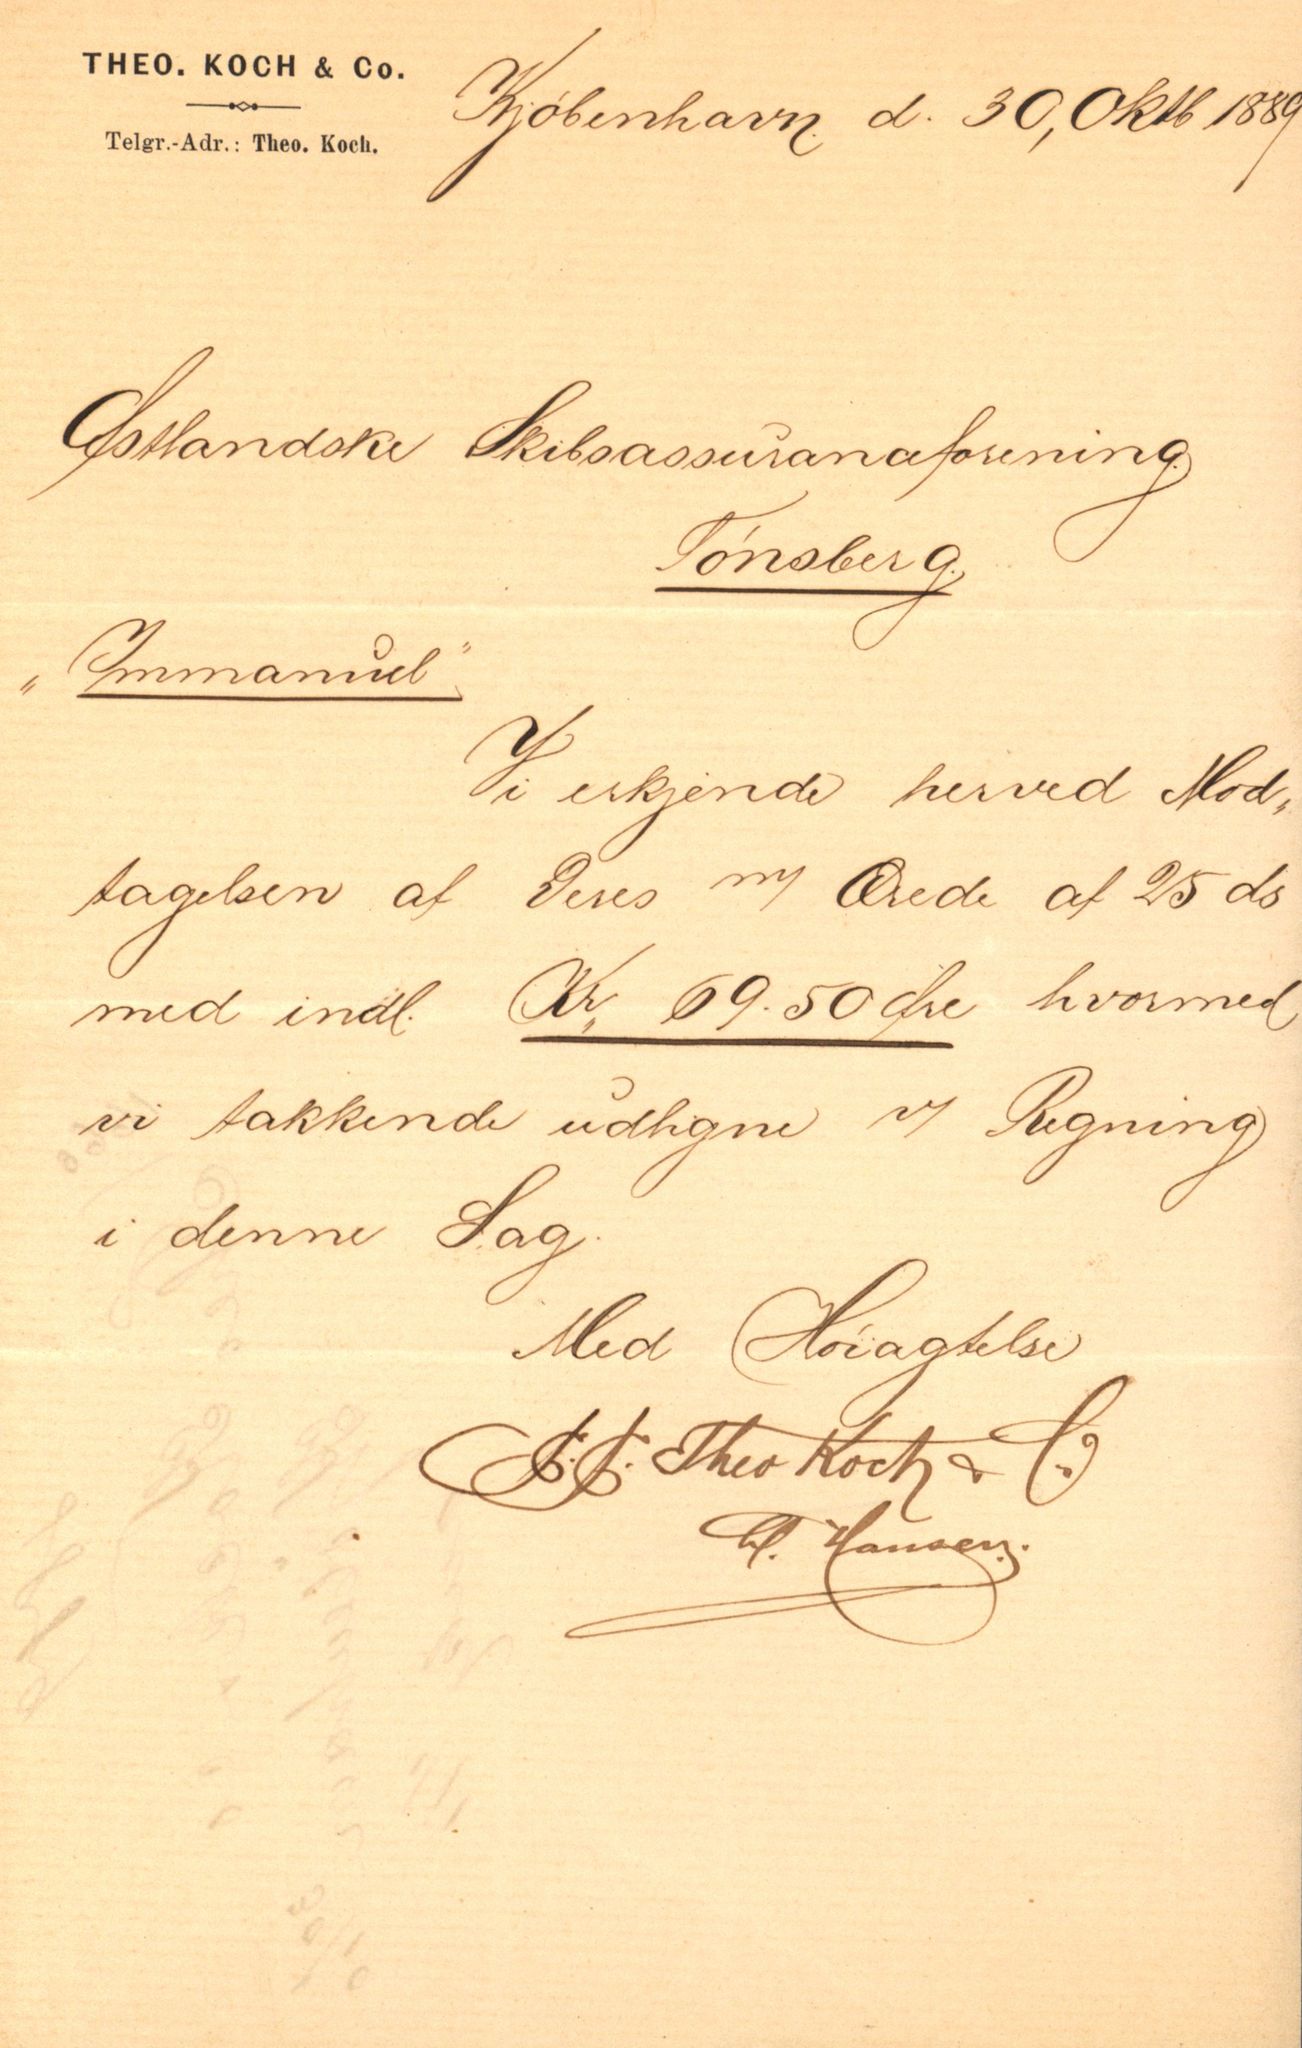 THEO. KOCH & Co.
Telgr.-Adr.: Theo. Koch.
Kjöbenhavn d. 30, Oktb 1889
Østlandske Skibsassuranceforening.
Tönsberg.
"Immanuel"
Vi erkjende herved Mod-
tagelsen af Deres m/ Ærede af 25 ds
med indl. Kr. 69.50 Øre hvormed
vi takkende udligne v/ Regning
i denne Sag.
Med Høiagtelse
Theo Koch & C.
Hansen.